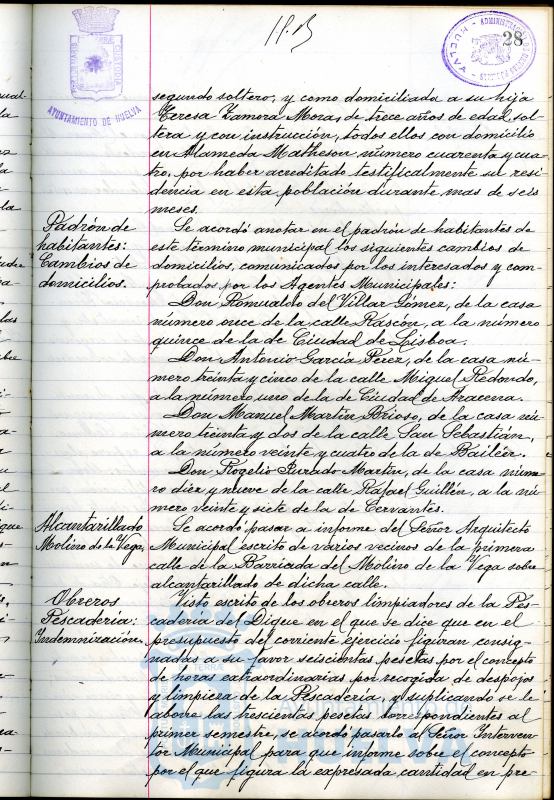 28
AYUNTAMIENTO DE HUELVA
segundo soltero; y como domiciliada a su hija
Teresa Zamora Mora, de trece años de edad sol-
tera y con instrucción, todos ellos con domicilio
en Alameda Matheson número cuarenta y cua-
tro, por haber acreditado testificalmente su resi-
dencia en esta población durante mas de seis
meses.
Padrón de
habitantes:
Cambios de
domicilios.
Se acordó anotar en el padrón de habitantes de
este término municipal los siguientes cambios de
domicilios, comunicados por los interesados y com-
probados por los Agentes Municipales:
Don Romualdo del Villar Gómez, de la casa
número once de la calle Rascón, a la número
quince de la de Ciudad de Lisboa.
Don Antonio García Pérez, de la casa nú-
mero treinta y cinco de la calle Miguel Redondo,
a la número uno de la de Ciudad de Aracena.
Don Manuel Martín Brioso, de la casa nú-
mero treinta y dos de la calle San Sebastián,
a la número veinte y cuatro de la de Bailén.
Don Rogelio Jurado Martín, de la casa núme-
ro diez y nueve de la calle Rafael Guillén, a la nú-
mero veinte y siete de la de Cervantes.
Alcantarillado
Molino de la Vega,
Se acordó pasar a informe del Señor Arquitecto
Municipal escrito de varios vecinos de la primera
calle de la Barriada del Molino de la Vega sobre
alcantarillado de dicha calle.
Obreros
Pescadería:
Indemnización.
Visto escrito de los obreros limpiadores de la Pes-
cadería del Dique en el que se dice que en el
presupuesto del corriente ejercicio figuran consig-
nadas a su favor seiscientas pesetas por el concepto
de horas extraordinarias por recogida de despojos
y limpieza de la Pescadería, y suplicando se le
abone las trescientas pesetas correspondientes al
primer semestre, se acordó pasarlo al Señor Interven-
tor Municipal para que informe sobre el concepto
por el que figura la expresada cantidad en pre-